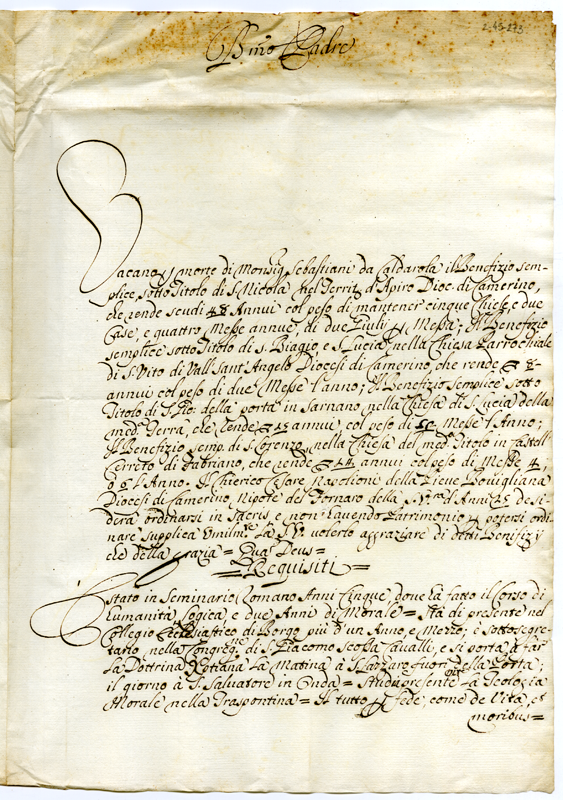 B.mo Padre
Vacano p morte di Monsig. Sebastiani da Caldarola il Benefizio sem-
plice sotto Titolo di S. Nicola nel Territ. d'Apiro Dioc. di Camerino,
che rende scudi 48 Annui col peso di mantener cinque Chiese, e due
Case, e quattro Messe annue, di due Giulj p Messa; Il Benefizio
semplice sotto Titolo di S. Biagio e S. Lucia nella Chiesa Parrochiale
di S. Vito di Vall Sant'Angelo Diocesi di Camerino, che rende 8
annui col peso di due Messe l'anno; Il Benefizio semplice sotto
Titolo di S. Gio: della porta in Sarnano nella Chiesa di S. Lucia della
med. Terra che rende 15 annui, col peso di 50 Messe l'Anno;
Il Benefizio semp. di S. Lorenzo nella Chiesa del med. Titolo in Castell
Cerreto di Fabriano, che rende 14 annui col peso di Messe 4,
ò 6 l'Anno. Il Chierico Cesore della Pieve Bovigliana
Diocesi di Camerino, Nipote del Fornaro della S. V. d'Anni 25 desi-
dera ordinarsi in Sacris e non havendo Patrimonio p potersi ordi-
nare supplica Humilm.te La S.V. volerlo aggraziare di detti Benefizj
che della grazia = Quã Deus =
= Requisiti =
Stato in Seminario Romano Anni Cinque, dove hà fatto il Corso di
Humanità Logica, e due Anni di Morale = Stà di presente nel
Collegio Ecclesiastico di Borgo più d'un Anno, e Mezzo; è sottosegre-
tario nella Congreg.e di S. Giacomo Scossa Cavalli, e si porta à far
La Dottrina Xtiana La Matina à S. Lazzaro fuori della Porta;
il giorno à S. Salvatore in Onda = Studia presente La Teologia
Morale nella Traspontina = Il tutto p fede, come de Vita, et
moribus =